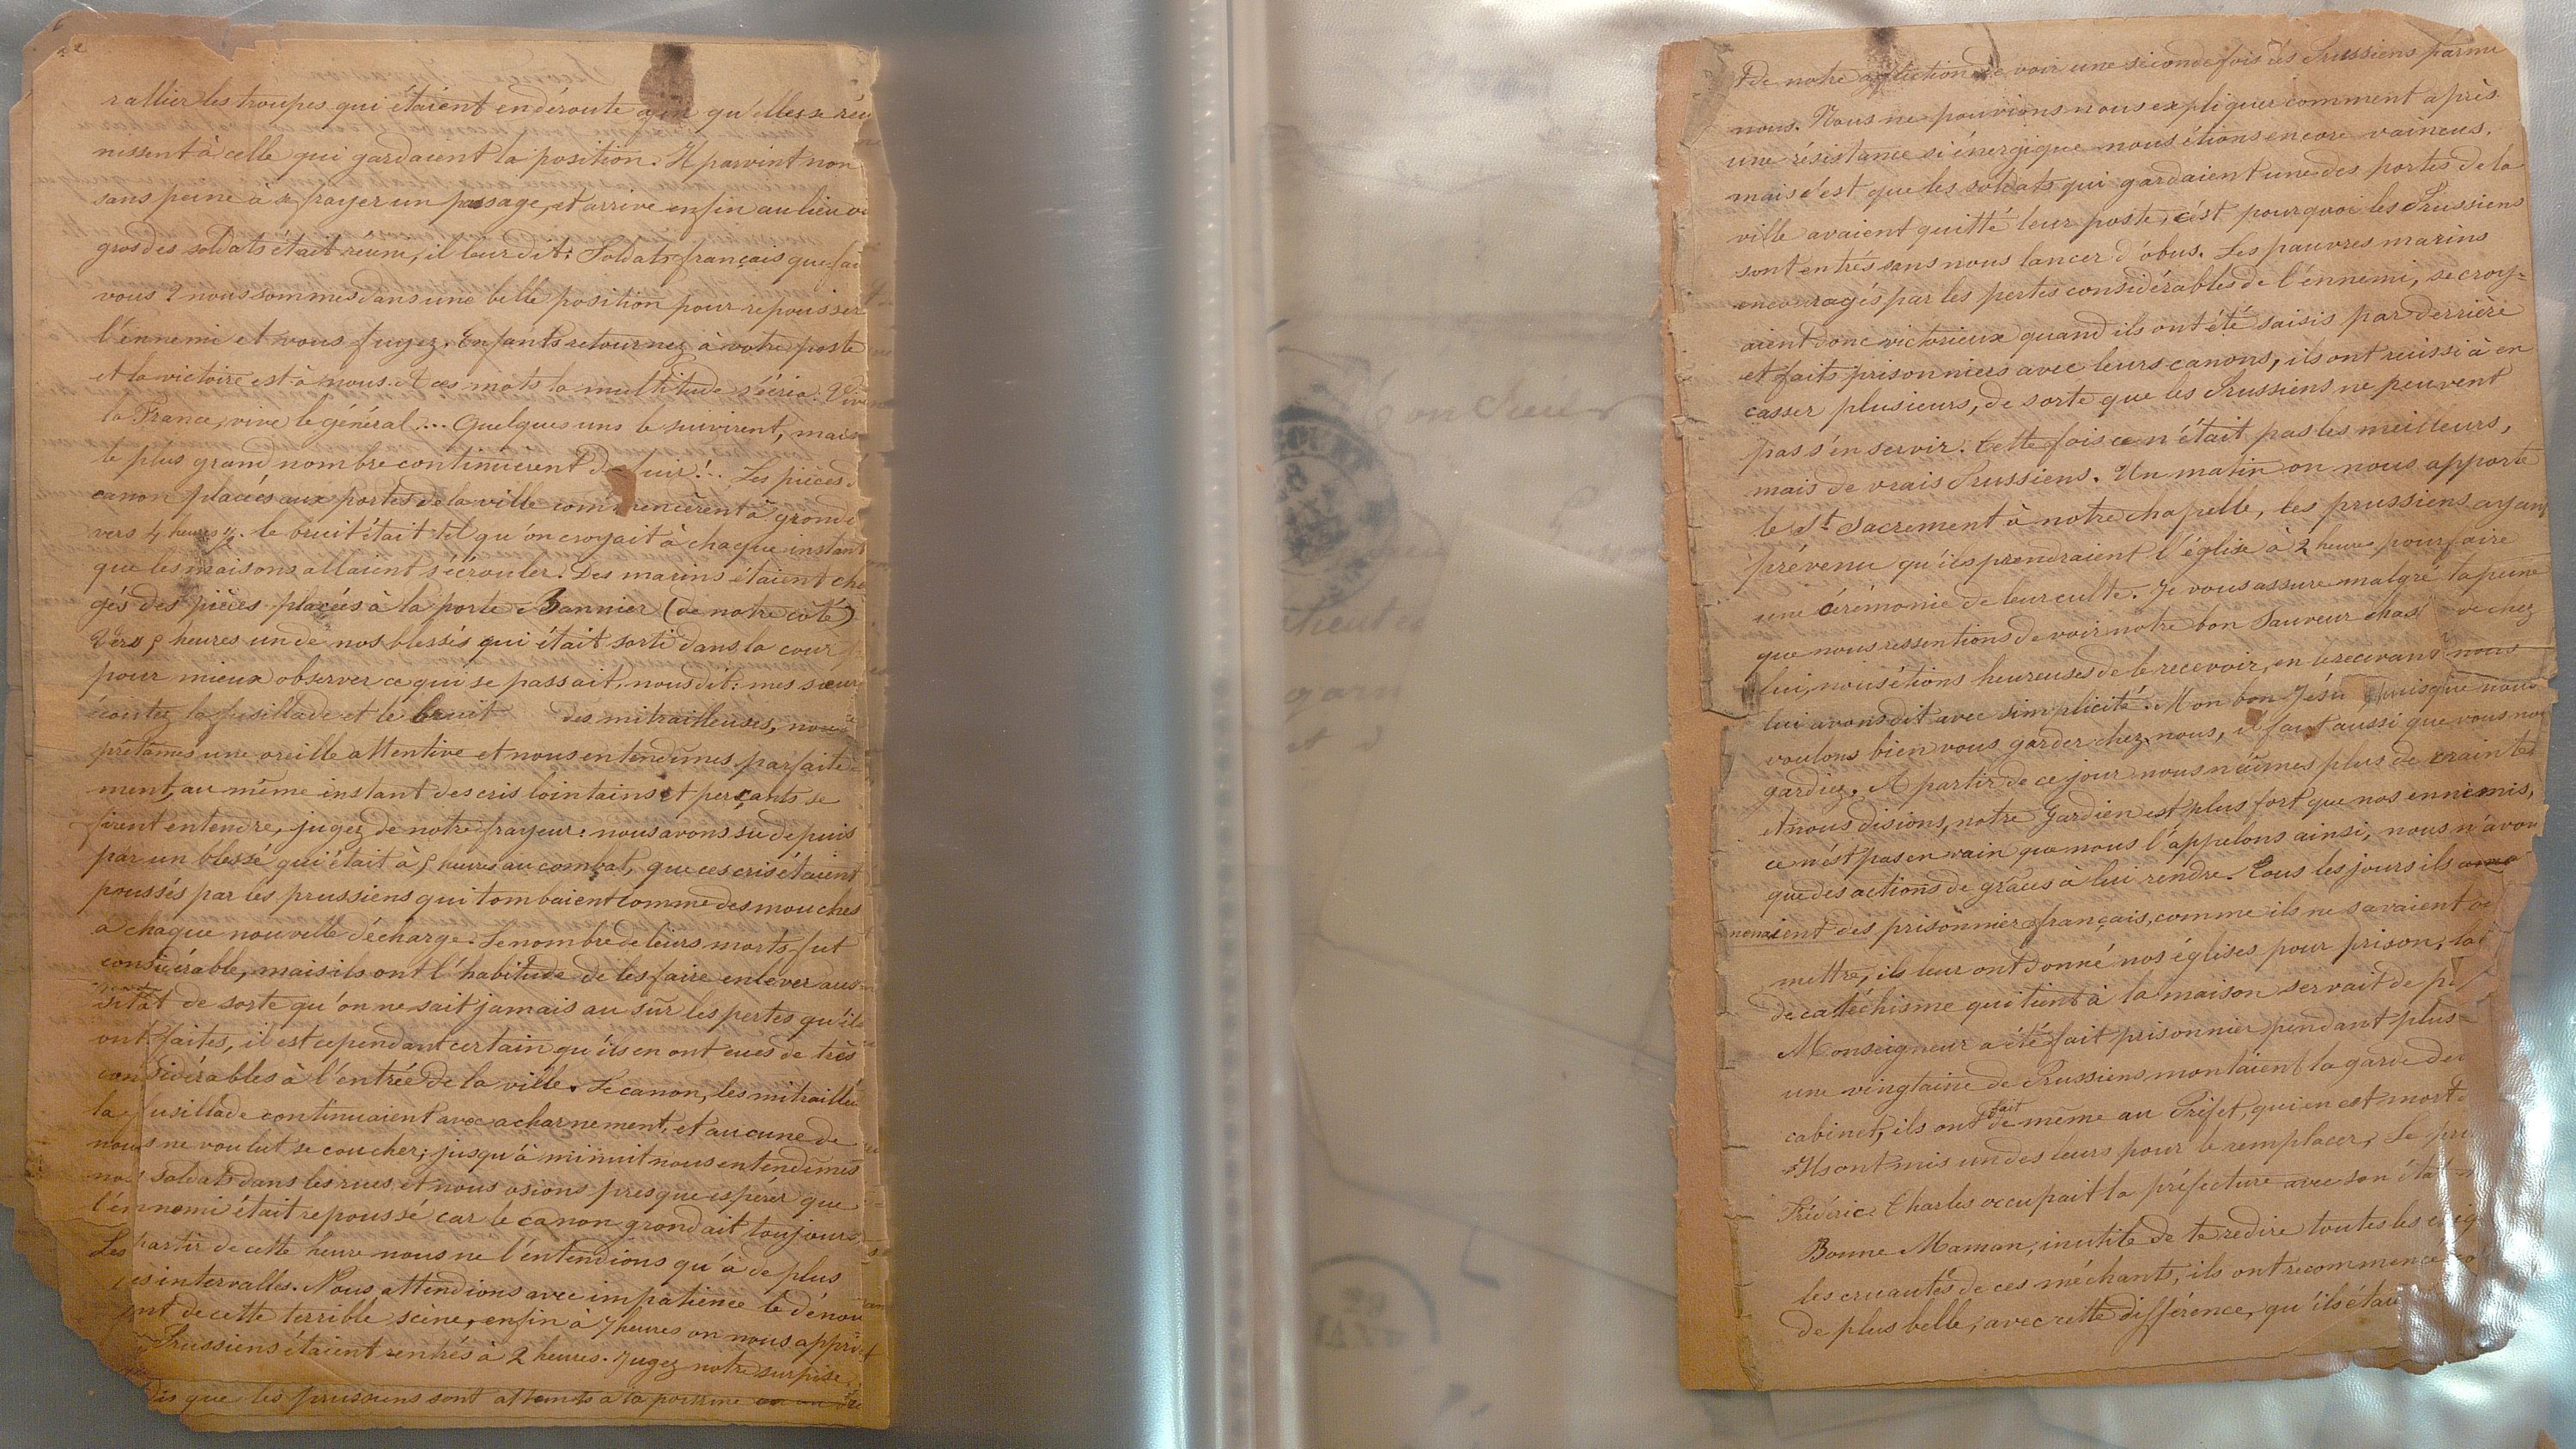 rallier les troupes qui étaient en déroute afin qu'elles se réu
nissent à celle qui gardaient la position. Il parvint non
sans peine à se frayer un passage, et arrivé enfin au lieu où
gros des soldats était réuni, il leur dit: Soldats français que fai
vous ? nous sommes dans une belle position pour repousser
l'énnemi et vous fuyez. Enfants retournez à votre poste
et la victoire est à nous. A ces mots la multitude s'écria. Vive
la France, vive le général.... Quelques uns le suivirent, mais
le plus grand nombre continuèrent de fuir!.. Les pièces d
canon placées aux portes de la ville commencèrent à gronde
vers 4 heures ½. le bruit était tel qu'on croyait à chaque instant
que les maisons allaient s'écrouler. Des marins étaient cha
gés des pièces placées à la porte Bannier (de notre côté)
Vers 5 heures un de nos blessés qui était sorti dans la cour
pour mieux observer ce qui se passait, nous dit: mes sœur
écoutez la fusillade et le bruit des mitrailleuses, nous
prêtames une oreille attentive et nous entendîmes parfaite-
ment, au même instant des cris lointains et perçants se
firent entendre, jugez de notre frayeur: nous avons su depuis
par un blessé qui était à 5 heures au combat, que ces cris étaient
poussés par les prussiens qui tombaient comme des mouches
à chaque nouvelle décharge. Le nombre de leurs morts fut
considérable, mais ils ont l'habitude de les faire enlever aus
sitôt de sorte qu'on ne sait jamais au sûr les pertes qu'ils
ont faites, il est cependant certain qu'ils en ont eues de très
considérables à l'entrée de la ville. Le canon, les mitraille
la fusillade continuaient avec acharnement, et aucune de
nous ne voulut se coucher; jusqu'à minuit nous entendîmes
nos soldats dans les rues et nous osions presque espérer que
l'énnemi était repoussé car le canon grondait toujours,
partir de cette heure nous ne l'entendions qu'à de plus
intervalles. Nous attendions avec impatience le dénou
nt de cette terrible scène, enfin à 7 heures on nous apprit
Prussiens étaient rentrés à 2 heures. Jugez notre surpise
dis que les prussiens sont atteints à la poitrine
De notre affliction de voir une seconde fois les Prussiens parmi
nous. Nous ne pouvions nous expliquer comment après
une résistance si énergique nous étions encore vaincus,
mais c'est que les soldats qui gardaient une des portes de la
ville avaient quitté leur poste, c'est pourquoi les Prussiens
sont entrés sans nous lancer d'obus. Les pauvres marins
encouragés par les pertes considérables de l'énnemi, se croy-
aient donc victorieux quand ils ont été saisis par derrière
et faits prisonniers avec leurs canons, ils ont réussi à en
casser plusieurs, de sorte que les Prussiens ne peuvent
pas s'en servir. Cette fois ce n'était pas les meilleurs,
mais de vrais Prussiens. Un matin on nous apporte
le St Sacrement à notre chapelle, les prussiens ayant
prévenu qu'ils prendraient l'église à 2 heures pour faire
une cérémonie de leur culte. Je vous assure malgré la peine
que nous ressentions de voir notre bon Sauveur chas de chez
lui, nous étions heureuses de le recevoir, en le recevant nous
lui avons dit avec simplicité. Mon bon Jésu puisque nous
voulons bien vous garder chez nous, il faut aussi que vous nou
gardiez. A partir de ce jour nous n'eûmes plus de craintes
et nous disions, notre Gardien est plus fort que nos ennemis,
ce n'est pas en vain que nous l'appelons ainsi, nous n'avon
que des actions de grâces à lui rendre. Tous les jours ils ame
nenaient des prisonniers français, comme ils ne savaient où
mettre, ils leur ont donné nos églises pour prison, la
de catéchisme qui tient à la maison servait de p
Monseigneur a été fait prisonnier pendant plus
une vingtaine de Prussiens montaient la garde de
cabinet, ils ont fait de même au Préfet, qui en est mort
Ils ont mis un des leurs pour le remplacer, Le pri
Frédéric Charles occupait la préfecture avec son éta
Bonne Maman, inutile de te redire toutes les exig
les cruautés de ces méchants, ils ont recommencé
de plus belle, avec cette différence, qu'ils étai